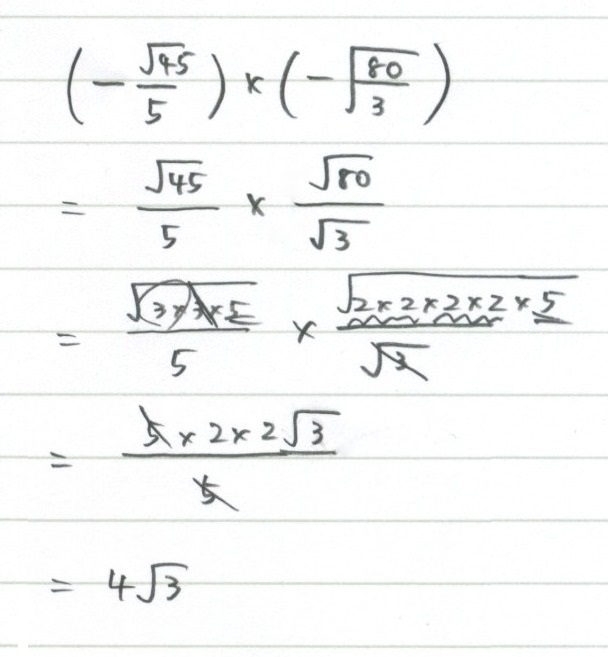 (-√45/5) × (-√(80/3))
= √45/5 × √80/√3
= √(3×3×5)/5 × √(2×2×2×2×5)/√3
= 5×2×2√3/5
= 4√3